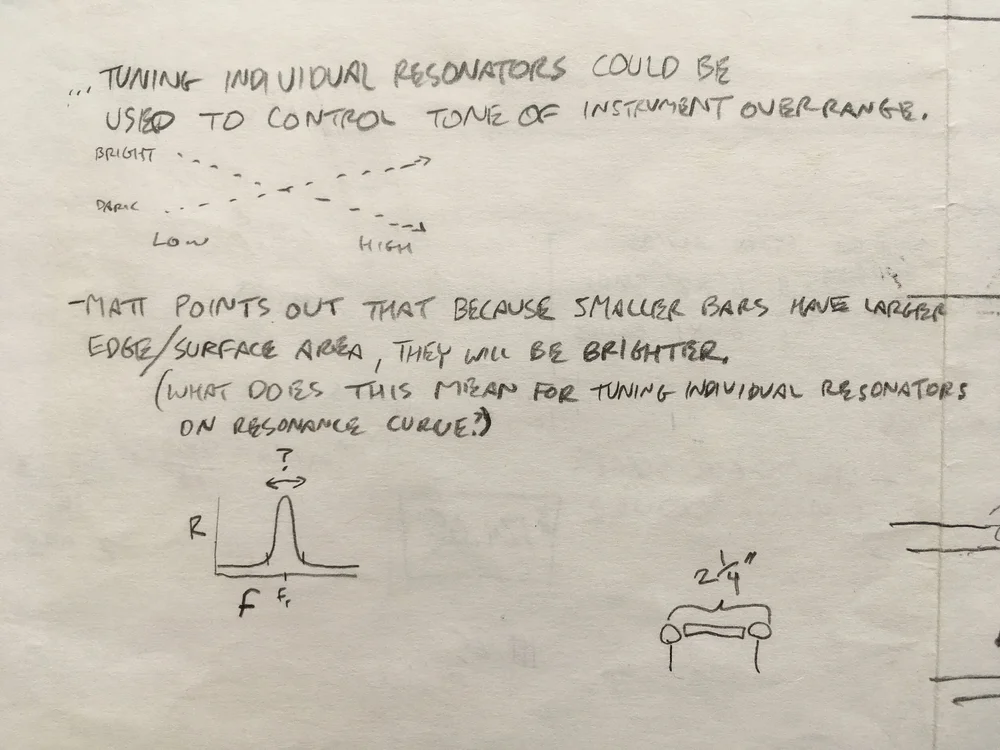 ... TUNING INDIVIDUAL RESONATORS COULD BE
USED TO CONTROL TONE OF INSTRUMENT OVER RANGE.
BRIGHT
DARK
LOW HIGH
-MATT POINTS OUT THAT BECAUSE SMALLER BARS HAVE LARGER
EDGE/SURFACE AREA, THEY WILL BE BRIGHTER.
(WHAT DOES THIS MEAN FOR TUNING INDIVIDUAL RESONATORS
ON RESONANCE CURVE?)
?
R
F Fr
2 1/4"